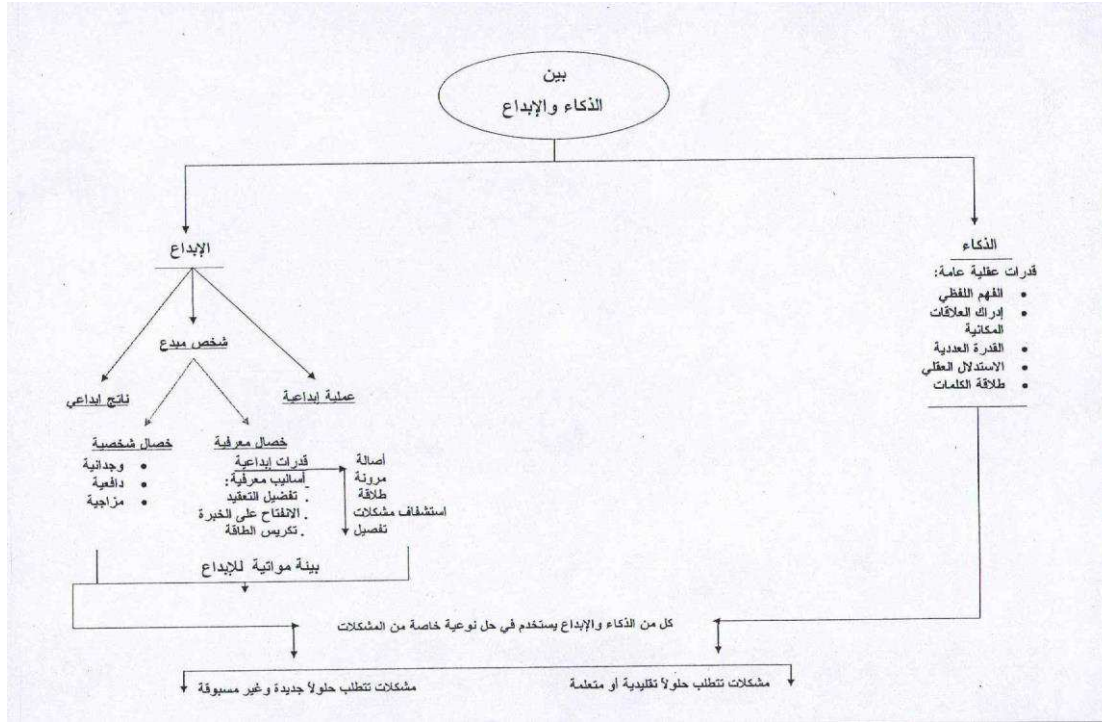 بين
الذكاء والإبداع
الذكاء
قدرات عقلية عامة:
• الفهم اللفظي
• إدراك العلاقات
المكانية
• القدرة العددية
• الاستدلال العقلي
• طلاقة الكلمات
الإبداع
شخص مبدع
عملية إبداعية
ناتج ابداعي
خصال معرفية
قدرات إبداعية
أساليب معرفية:
. تفضيل التعقيد
. الانفتاح على الخبرة
. تكريس الطاقة
أصالة
مرونة
طلاقة
استشفاف مشكلات
تفصيل
خصال شخصية
• وجدانية
• دافعية
• مزاجية
بيئة مواتية للإبداع
كل من الذكاء والإبداع يستخدم في حل نوعية خاصة من المشكلات
مشكلات تتطلب حلولاً تقليدية أو متعلمة
مشكلات تتطلب حلولاً جديدة وغير مسبوقة